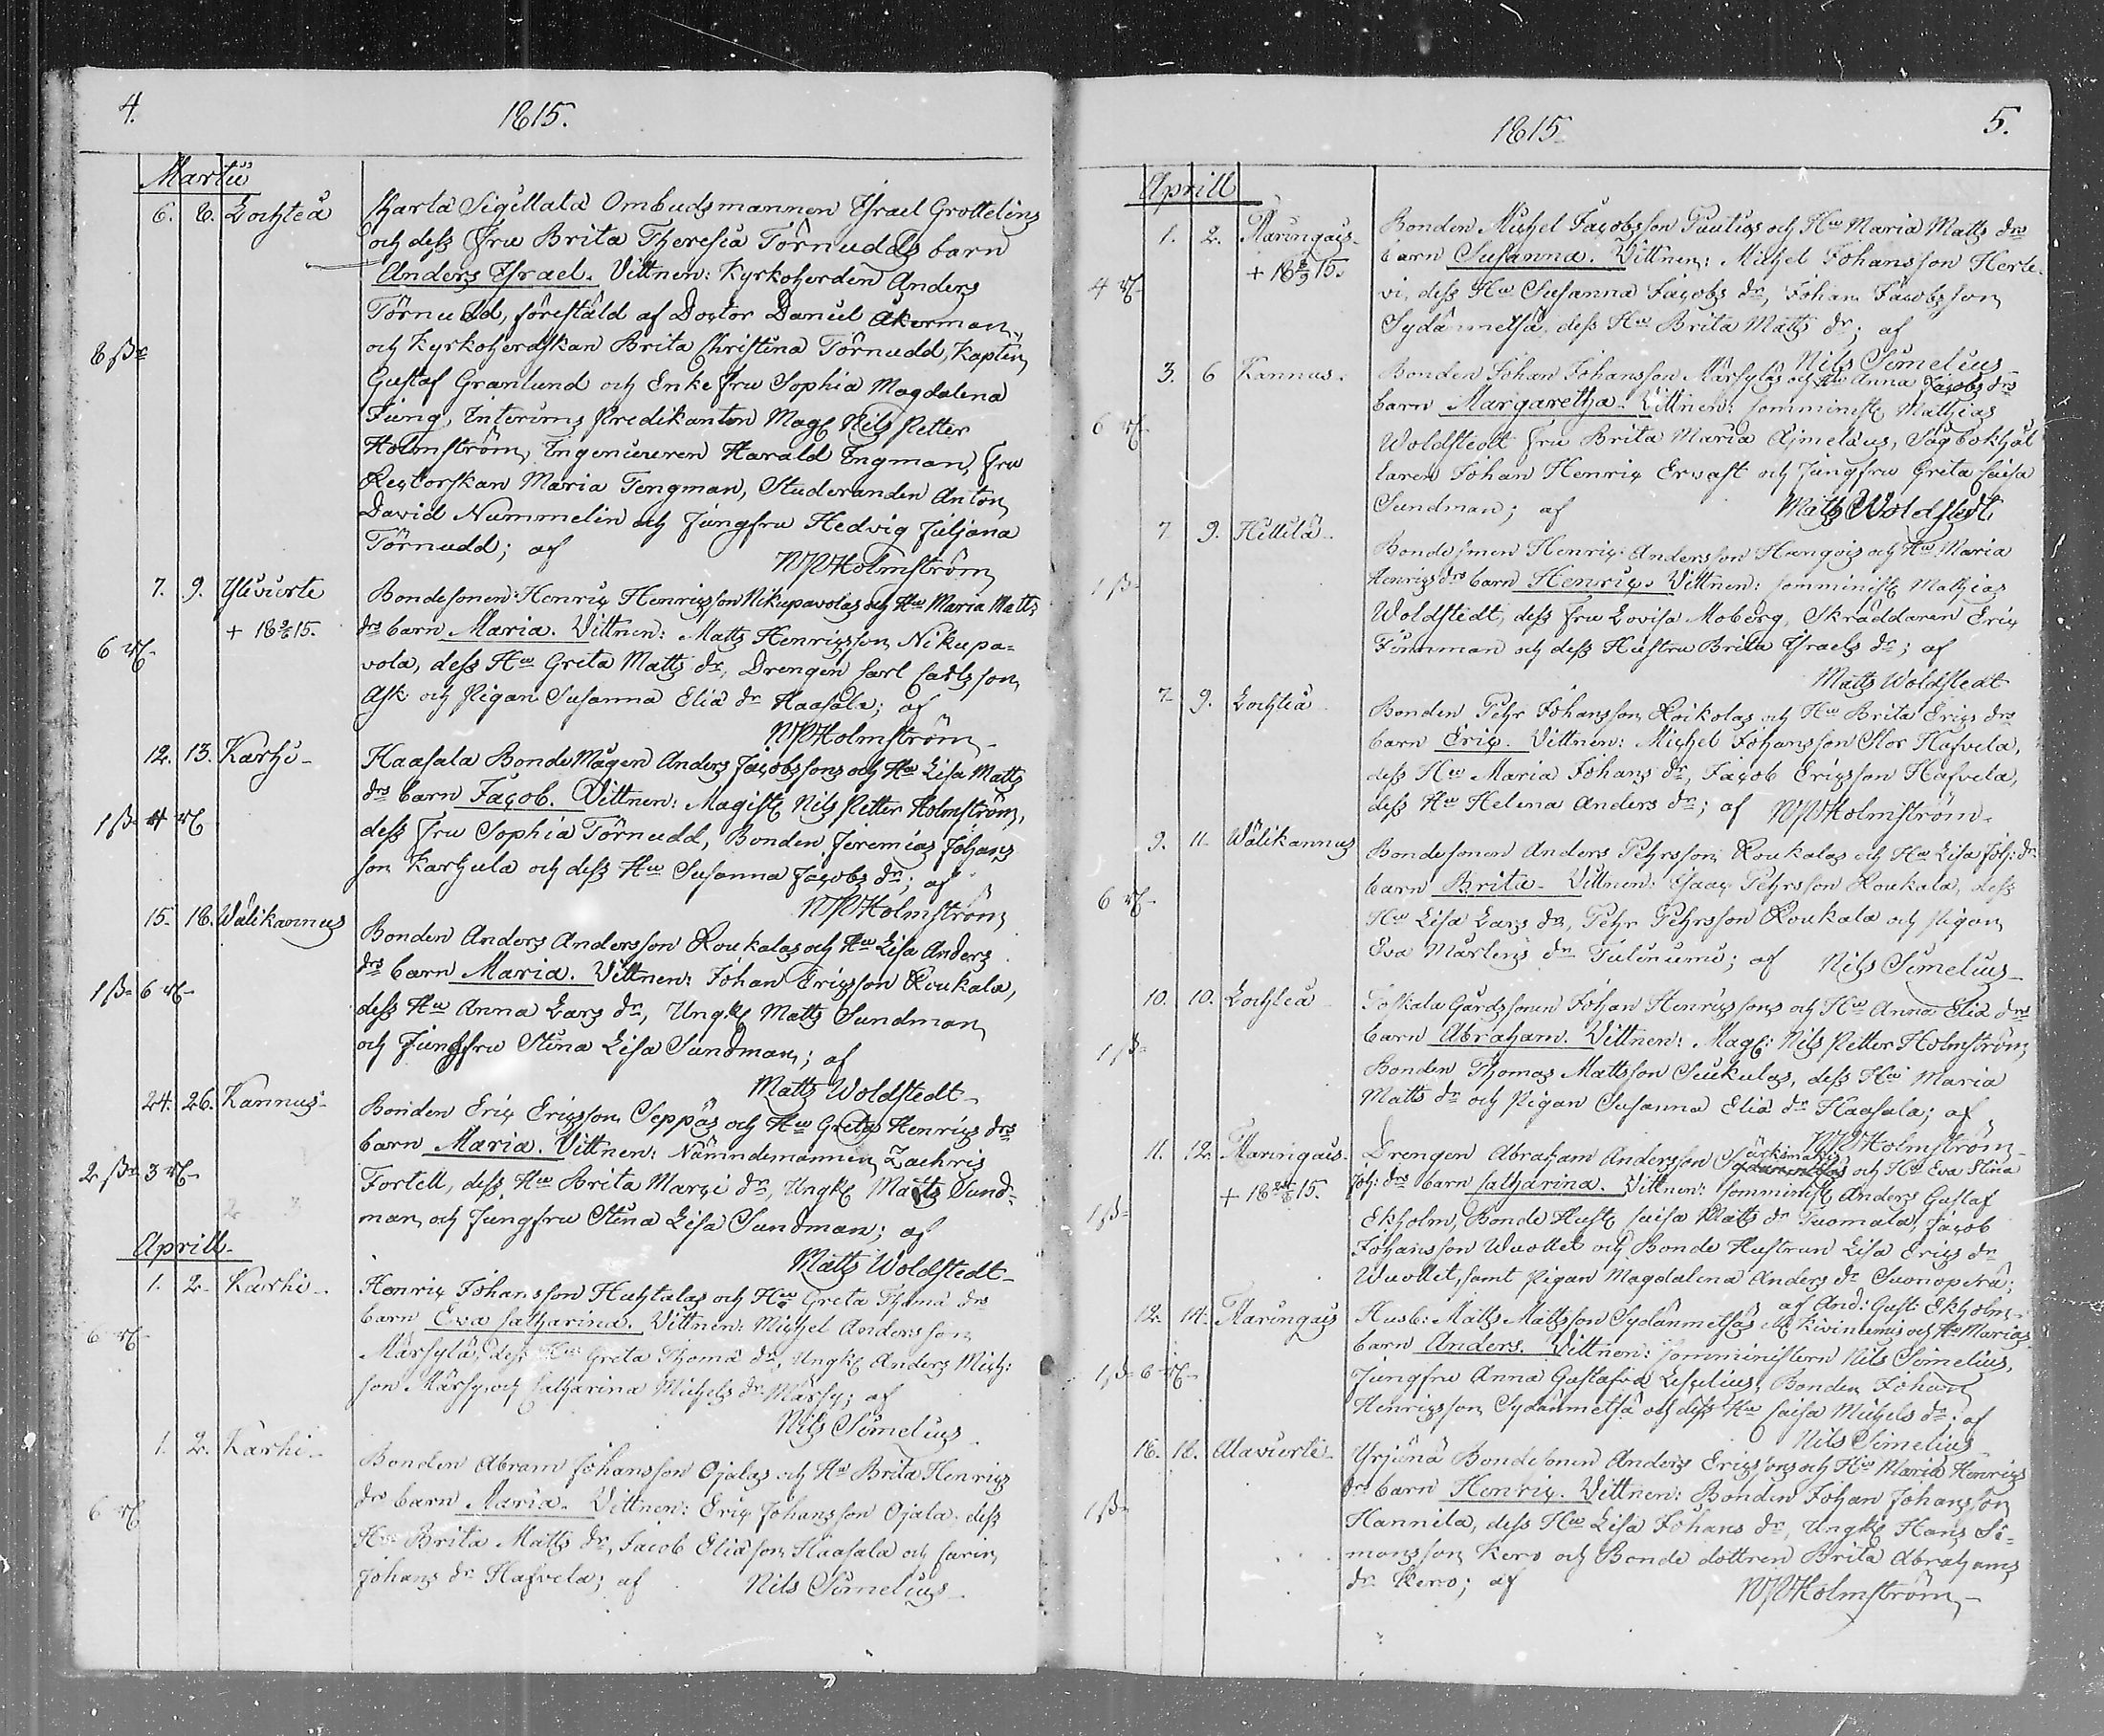 4.
1815.
Martii
6. 8. Lochteå Charta Sigillata Ombudsmannen Israel Grottelins
och dess Fru Brita Theresia Törnudds barn
Anders Israel. Vittnen: Kyrkoherden Anders
Törnudd, föreställd af Doctor Daniel Åkerman,
och Kyrkoherdskan Brita Christina Törnudd, Kapten
Gustaf Granlund och Enke Fru Sophia Magdalena
Jung, Interims Predikanten Mag. Nils Petter
Holmström, Ingenieuren Harald Ingman, Fru
Rectorskan Maria Tengman, Studeranden Anton
David Nummelin och Jungfru Hedvig Juljana
Törnudd; af NPHolmström
7. 9. Yliviirte Bondesonen Henric Henricsson Nikupavolas och Hu Maria Matts
+ 18 15. drs barn Maria. Vittnen: Matts Henricsson Nikupa-
vola, dess Hu Greta Matts dr, Drengen Carl Carlsson
Ask och Pigan Susanna Elia dr Haasala; af
NPHolmström
12. 13. Karhi- Haasala BondeMågen Anders Jacobssons och Hu Lisa Matts
drs barn Jacob. Vittnen: Magist. Nils Petter Holmström,
dess Fru Sophia Törnudd, Bonden Jeremias Johans
son Karhula och dess Hu Susanna Jacobs dr; af
NPHolmström
15. 18. Wälikannus Bonden Anders Andersson Roukalas och Hu Lisa Anders
drs barn Maria. Vittnen: Johan Ericsson Roukala,
dess Hu Anna Lars dr, Ungk. Matts Sundman
och Jungfru Stina Lisa Sundman; af
Matts Woldstedt
24. 26. Kannus- Bonden Eric Ericsson Seppäs och Hu Greta Henrics drs
barn Maria. Vittnen: Nämndemannen Zachris
Fortell, dess Hu Brita Marci dr, Ungk. Matts Sund-
man och Jungfru Stina Lisa Sundman; af
Matts Woldstedt
Aprill.
1. 2. Karhi- Henric Johansson Huhtalas och Hu Greta Thoma drs
barn Eva Catharina. Vittnen: Michel Andersson
Märsylä, dess Hu Greta Thoma dr, Ungk. Anders Mich:
son Märsy, och Catharina Michels dr Märsy; af
Nils Simelius
1. 2. Karhi- Bonden Abram Johansson Ojalas och Hu Brita Henrics
drs barn Maria. Vittnen: Eric Johansson Ojala, dess
Hu Brita Matts dr, Jacob Eliasson Haasala och Carin
Johans dr Hafvela; af Nils Simelius
1815.
5.
Aprill
1. 2. Maringais- Bonden Michel Jacobsson Tuulos och Hu Maria Matts drs
+ 18 15. barn Susanna. Vittnen: Michel Johansson Herle-
vi, dess Hu Susanna Jacobs dr, Johan Jacobsson
Sydänmetsä, dess Hu Brita Matts dr; af
Nils Simelius
3. 6 Kannus. Bonden Johan Johansson Märsyläs och Hu Anna Jacobs drs
barn Margaretha. Vittnen: Comminist. Mathias
Woldstedt Fru Brita Maria Ajmelæus, Sågbokhål
laren Johan Henric Ervast och Jungfru Greta Caisa
Sundman; af Matts Woldstedt
7. 9. Hillilä Bondesonen Henric Andersson Hanqois och Hu Maria
Henrics drs barn Henric. Vittnen: Comminist. Mathias
Woldstedt, dess Fru Lovisa Moberg, Skräddaren Eric
Finnman och dess Hustru Brita Israels dr; af
Matts Woldstedt
7. 9. Lochteå Bonden Pehr Johansson Roikolas och Hu Brita Erics drs
barn Eric. Vittnen: Michel Johansson Stor Hafvela,
dess Hu Maria Johans dr, Jacob Ericsson Hafvela,
dess Hu Helena Anders dr; af NPHolmström
9. 11. Wälikannus Bondesonen Anders Pehrsson Roukalas och Hu Lisa Joh: drs
barn Brita. Vittnen: Isaac Pehrsson Roukala, dess
Hu Lisa Lars dr, Pehr Pehrsson Roukala och Pigan
Eva Mårtens dr Tuliniemi; af Nils Simelius
10. 10. Lochteå Joskala Gårdssonen Johan Henricssons och Hu Anna Elia drs
barn Abraham. Vittnen: Mag: Nils Petter Holmström
Bonden Thomas Mattsson Seukulas, dess Hu Maria
Matts dr och Pigan Susanna Elia dr Haasala; af
NPHolmström
11. 12. Maringais- Drengen Abraham Andersson och Hu Eva Stina
+ 18 15. Joh: drs barn Catharina. Vittnen: Comminist. Anders Gustaf
Ekholm, Bonde Hust. Caisa Matts dr Tuomala, Jacob
Johansson Wuollet och Bonde Hustrun Lisa Erics dr
Wuollet, samt Pigan Magdalena Anders dr Suonoperä;
af And: Gust: Ekholm
12. 14. Maringais Husb: Matts Mattsson Sydänmetsäs Kiviniemis och Hu Marias
barn Anders. Vittnen: Comministern Nils Simelius,
Jungfru Anna Gustafva Lesselius, Bonden Johan
Henricsson Sydänmetsä och dess Hu Caisa Michels dr; af
Nils Simelius
16. 18. Alaviirte- Yrjänä Bondesonen Anders Ericssons och Hu Maria Henrics
drs barn Henric. Vittnen: Bonden Johan Johansson
Hannila, dess Hu Lisa Johans dr, Ungk. Hans Si-
monsson Kero och Bonde dottren Brita Abrahams
dr Kero; af NPHolmström